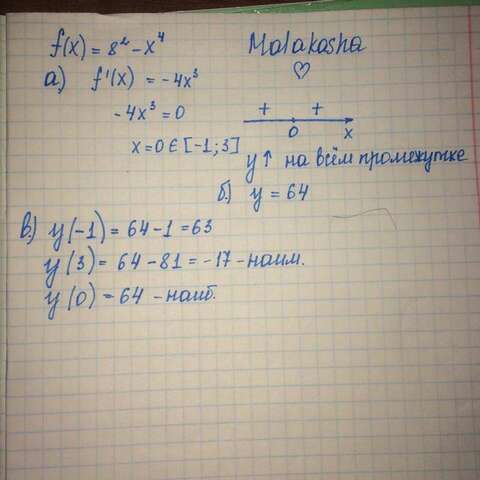 f(x) = 8² - x⁴
Malakasha
♡
а) f'(x) = -4x³
-4x³ = 0
x = 0 ∈ [-1; 3]
+ +
0 x
y↑ на всём промежутке
б.) y = 64
в.) y(-1) = 64 - 1 = 63
y(3) = 64 - 81 = -17 - наим.
y(0) = 64 - наиб.